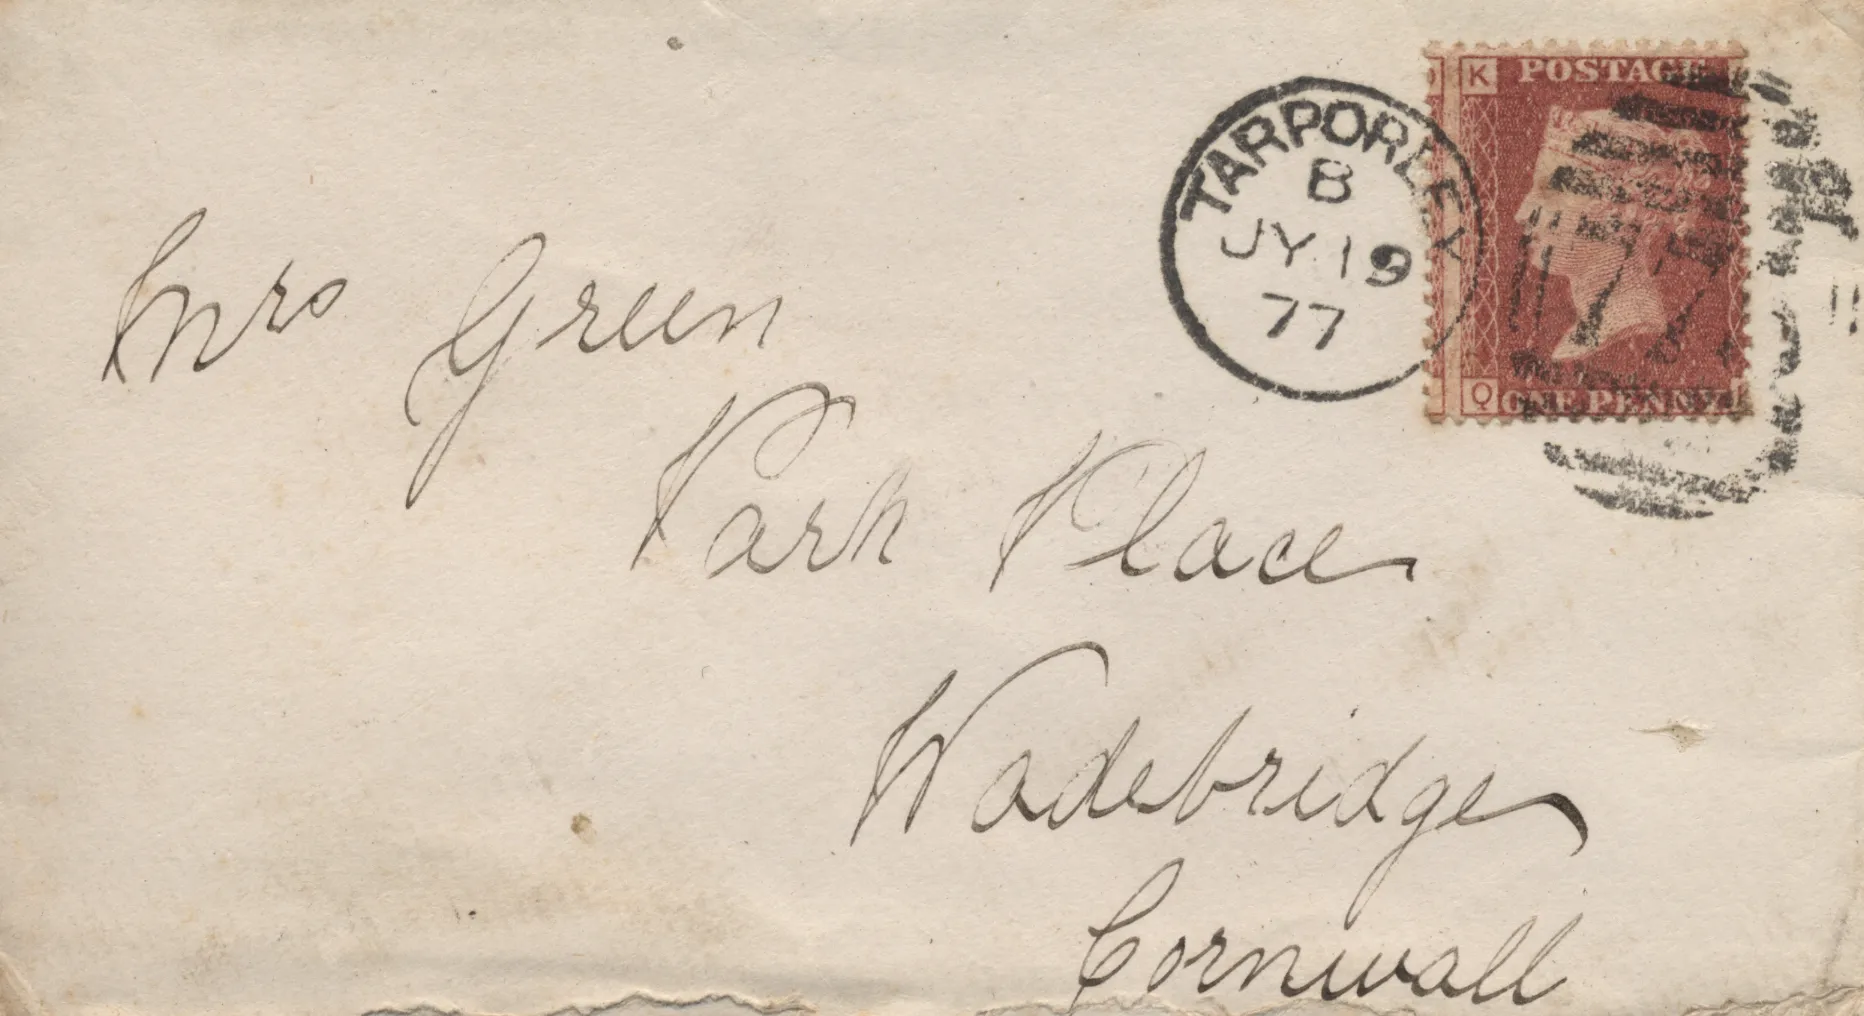 K POSTAGE
TARPORLEY
B
JY 19
77
Q ONE PENNY
Mrs Green
Park Place
Wadebridge
Cornwall